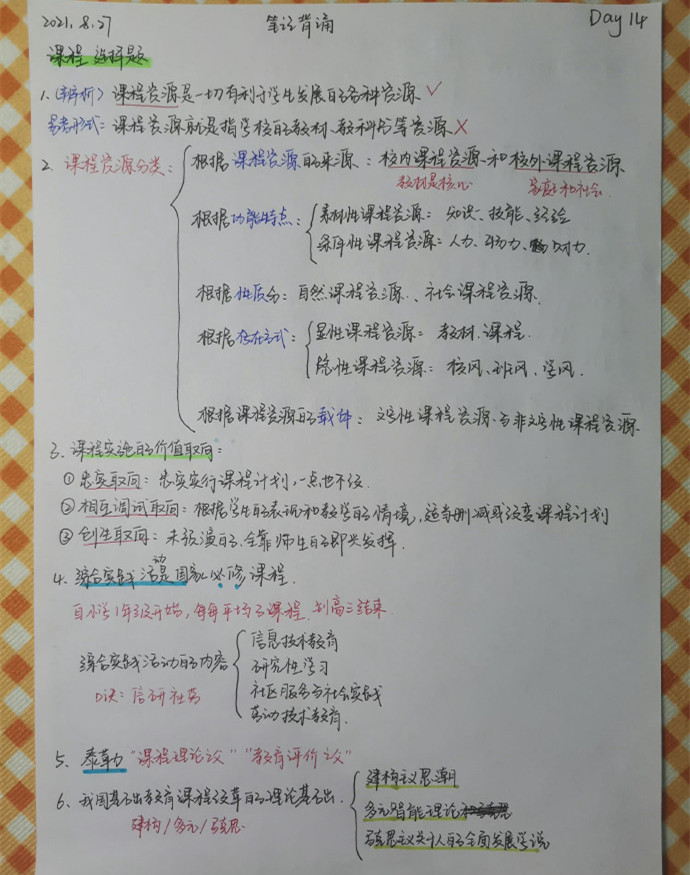 2021.8.27 笔记背诵 Day 14
课程 选择题
1.(辨析) 课程资源是一切有利于学生发展的各种资源 ✓
易考形式：课程资源就是指学校的教材、教科书等资源 ✗
2. 课程资源分类：
根据课程资源的来源：校内课程资源和校外课程资源
教材是核心 家庭和社会
根据功能特点：
素材性课程资源：知识、技能、经验
条件性课程资源：人力、物力、财力.
根据性质分：自然课程资源、社会课程资源
根据存在方式：
显性课程资源：教材.课程.
隐性课程资源：校风、班风、学风.
根据课程资源的载体：文字性课程资源与非文字性课程资源
3. 课程实施的价值取向：
①忠实取向：忠实实行课程计划，一点也不改.
②相互调试取向：根据学生的表现和教学的情境，适当删减或改变课程计划
③创生取向：未预演的.全靠师生的即兴发挥.
4. 综合实践活动是国家必修课程.
自小学1年级开始，每年平均的课程.到高三结束
综合实践活动的内容
信息技术教育
研究性学习
社区服务与社会实践
劳动技术教育.
口诀：信研社劳
5. 泰勒 “课程理论之父” “教育评价之父”
6. 我国基础教育课程改革的理论基础.
建构/多元/马思
建构主义思潮
多元智能理论
马思主义关于人的全面发展学说